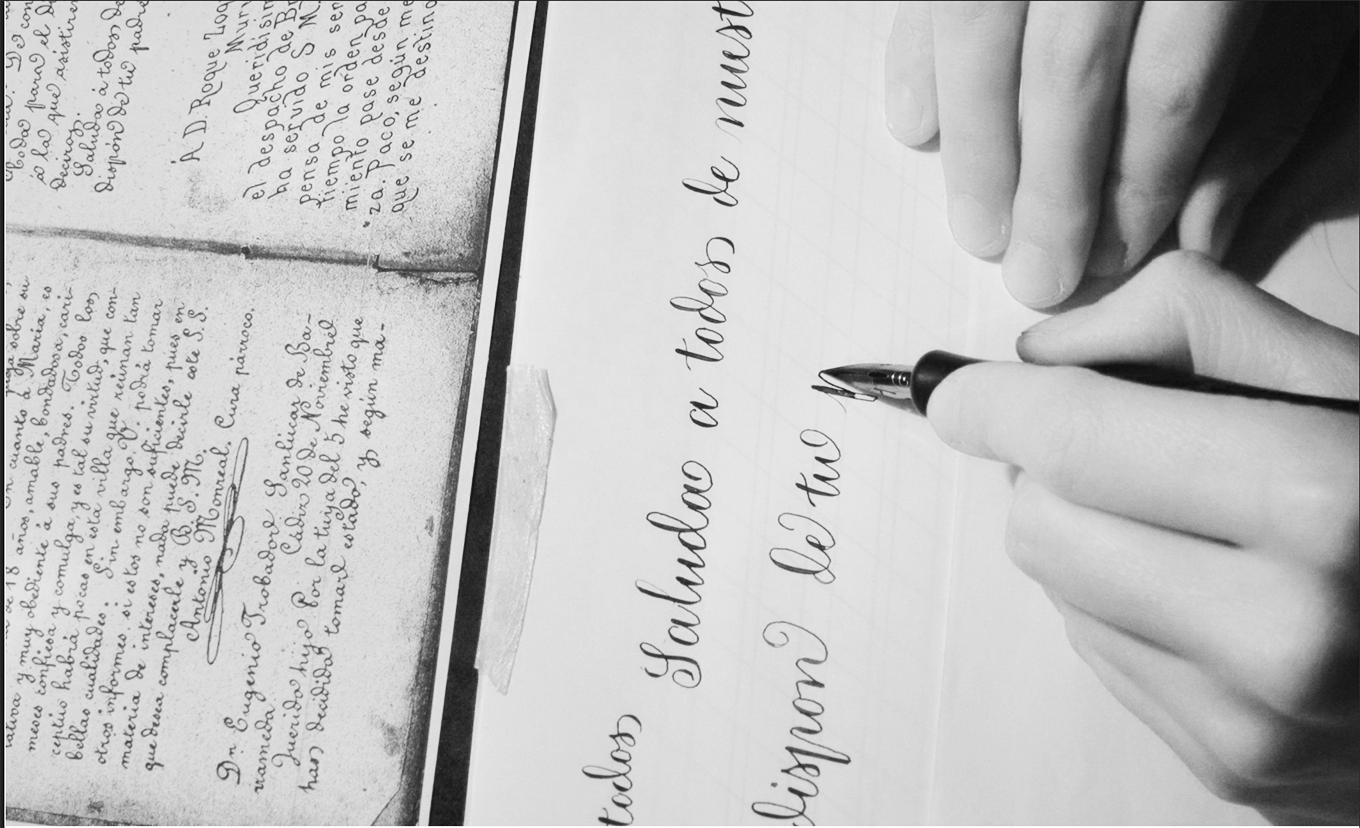 sobre su
En cuanto á María, es
de 18 años, amable, bondadosa, cari-
y muy obediente á sus padres. Todos los
meses confiesa y comulga, y es tal su virtud, que con-
ceptúo habrá pocas en esta villa que reúnan tan
bellas cualidades. Sin embargo, V. podrá tomar
otros informes. si estos no son suficientes, pues en
materia de intereses, nada puede decirle este S. S.
que desea complacerle y B. S. M.
Antonio Monreal, Cura párroco.
Dn. Eugenio Trobador Sanlúcar de Ba-
rrameda Cádiz 20 de Noviembre
Querido hijo Por la tuya del 5 he visto que
has decidido tomar estado, y según ma-
para el
á la que asistire
deciros.
Saluda á todos de
dispón de tu padre
Á D. Roque
Mur
Queridísim
el despacho de
ha servido S M.
pensa de mis ser
tiempo la orden pa
miento pase desde
za. Paco, según me
que se me destino
todos
Saluda a todos de nuest
dispon de tu